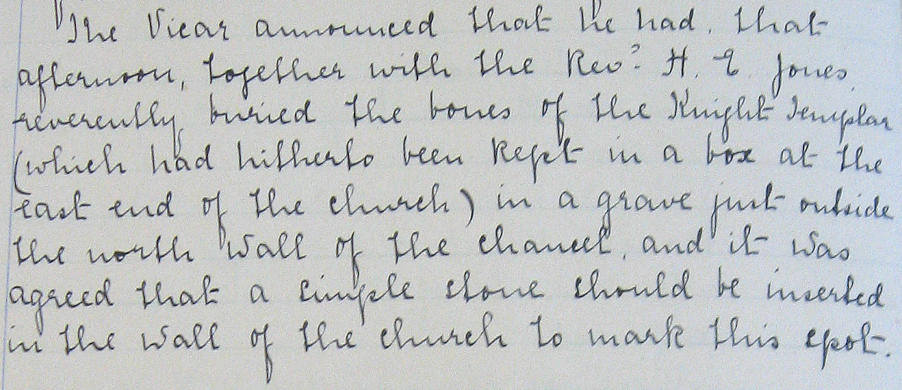 The Vicar announced that he had, that
afternoon, together with the Revd. H. E. Jones
reverently buried the bones of the Knight Templar
(which had hitherto been kept in a box at the
east end of the church) in a grave just outside
the north wall of the chancel, and it was
agreed that a simple stone should be inserted
in the wall of the church to mark this spot.